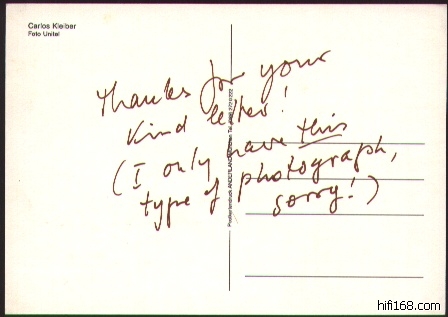 Carlos Kleiber
Foto Unitel
Thanks for your
kind letter!
(I only have this
type of photograph,
sorry!)
hifi168.com